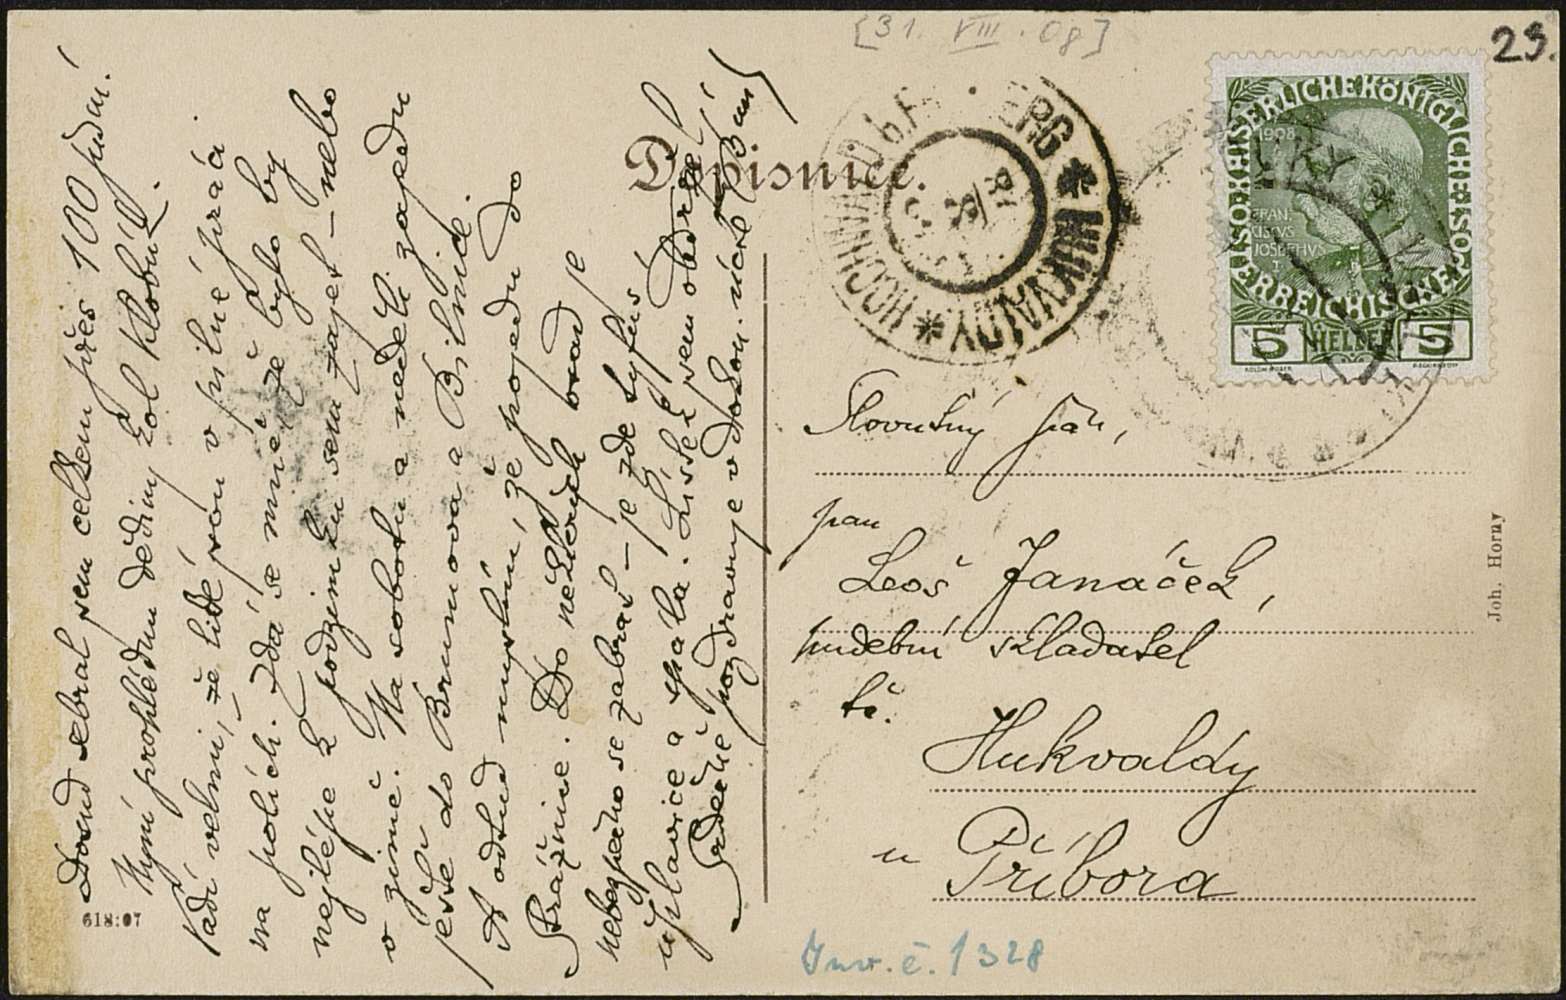 [31. VIII. 08]
23.
Dopisnice.
HOCHWALD b. F...BERG * HUKVALDY *
KAISERLICHE KÖNIGLICHE ÖSTERREICHISCHE POST
1908
FRAN.
CISCVS
JOSEPHVS
I
5 HELLER 5
Slovutný pán,
pan
Leoš Janáček,
hudební skladatel
tč.
Hukvaldy
u Příbora
Joh. Horny
Inv. č. 1328
618:07
Dosud sebral jsem celkem přes 100 písní.
Nyní prohlédnu dědiny kol Klobúk.
Vadí velmi, že lidé jsou v pilné práci
na polích. Zdá se mně, že by bylo
nejlépe k podzimku sem zajet – nebo
v zimě. Na sobotu a neděli zajedu
ještě do Brumova a Bilnice.
A odtud myslím, že pojedu do
Strážnice. Do některých osad je
nebezpečno se zabrat – je zde tyfus
úplavice a spála. Lístek jsem obdržel
Srdečně pozdravuje v dokon. úctě